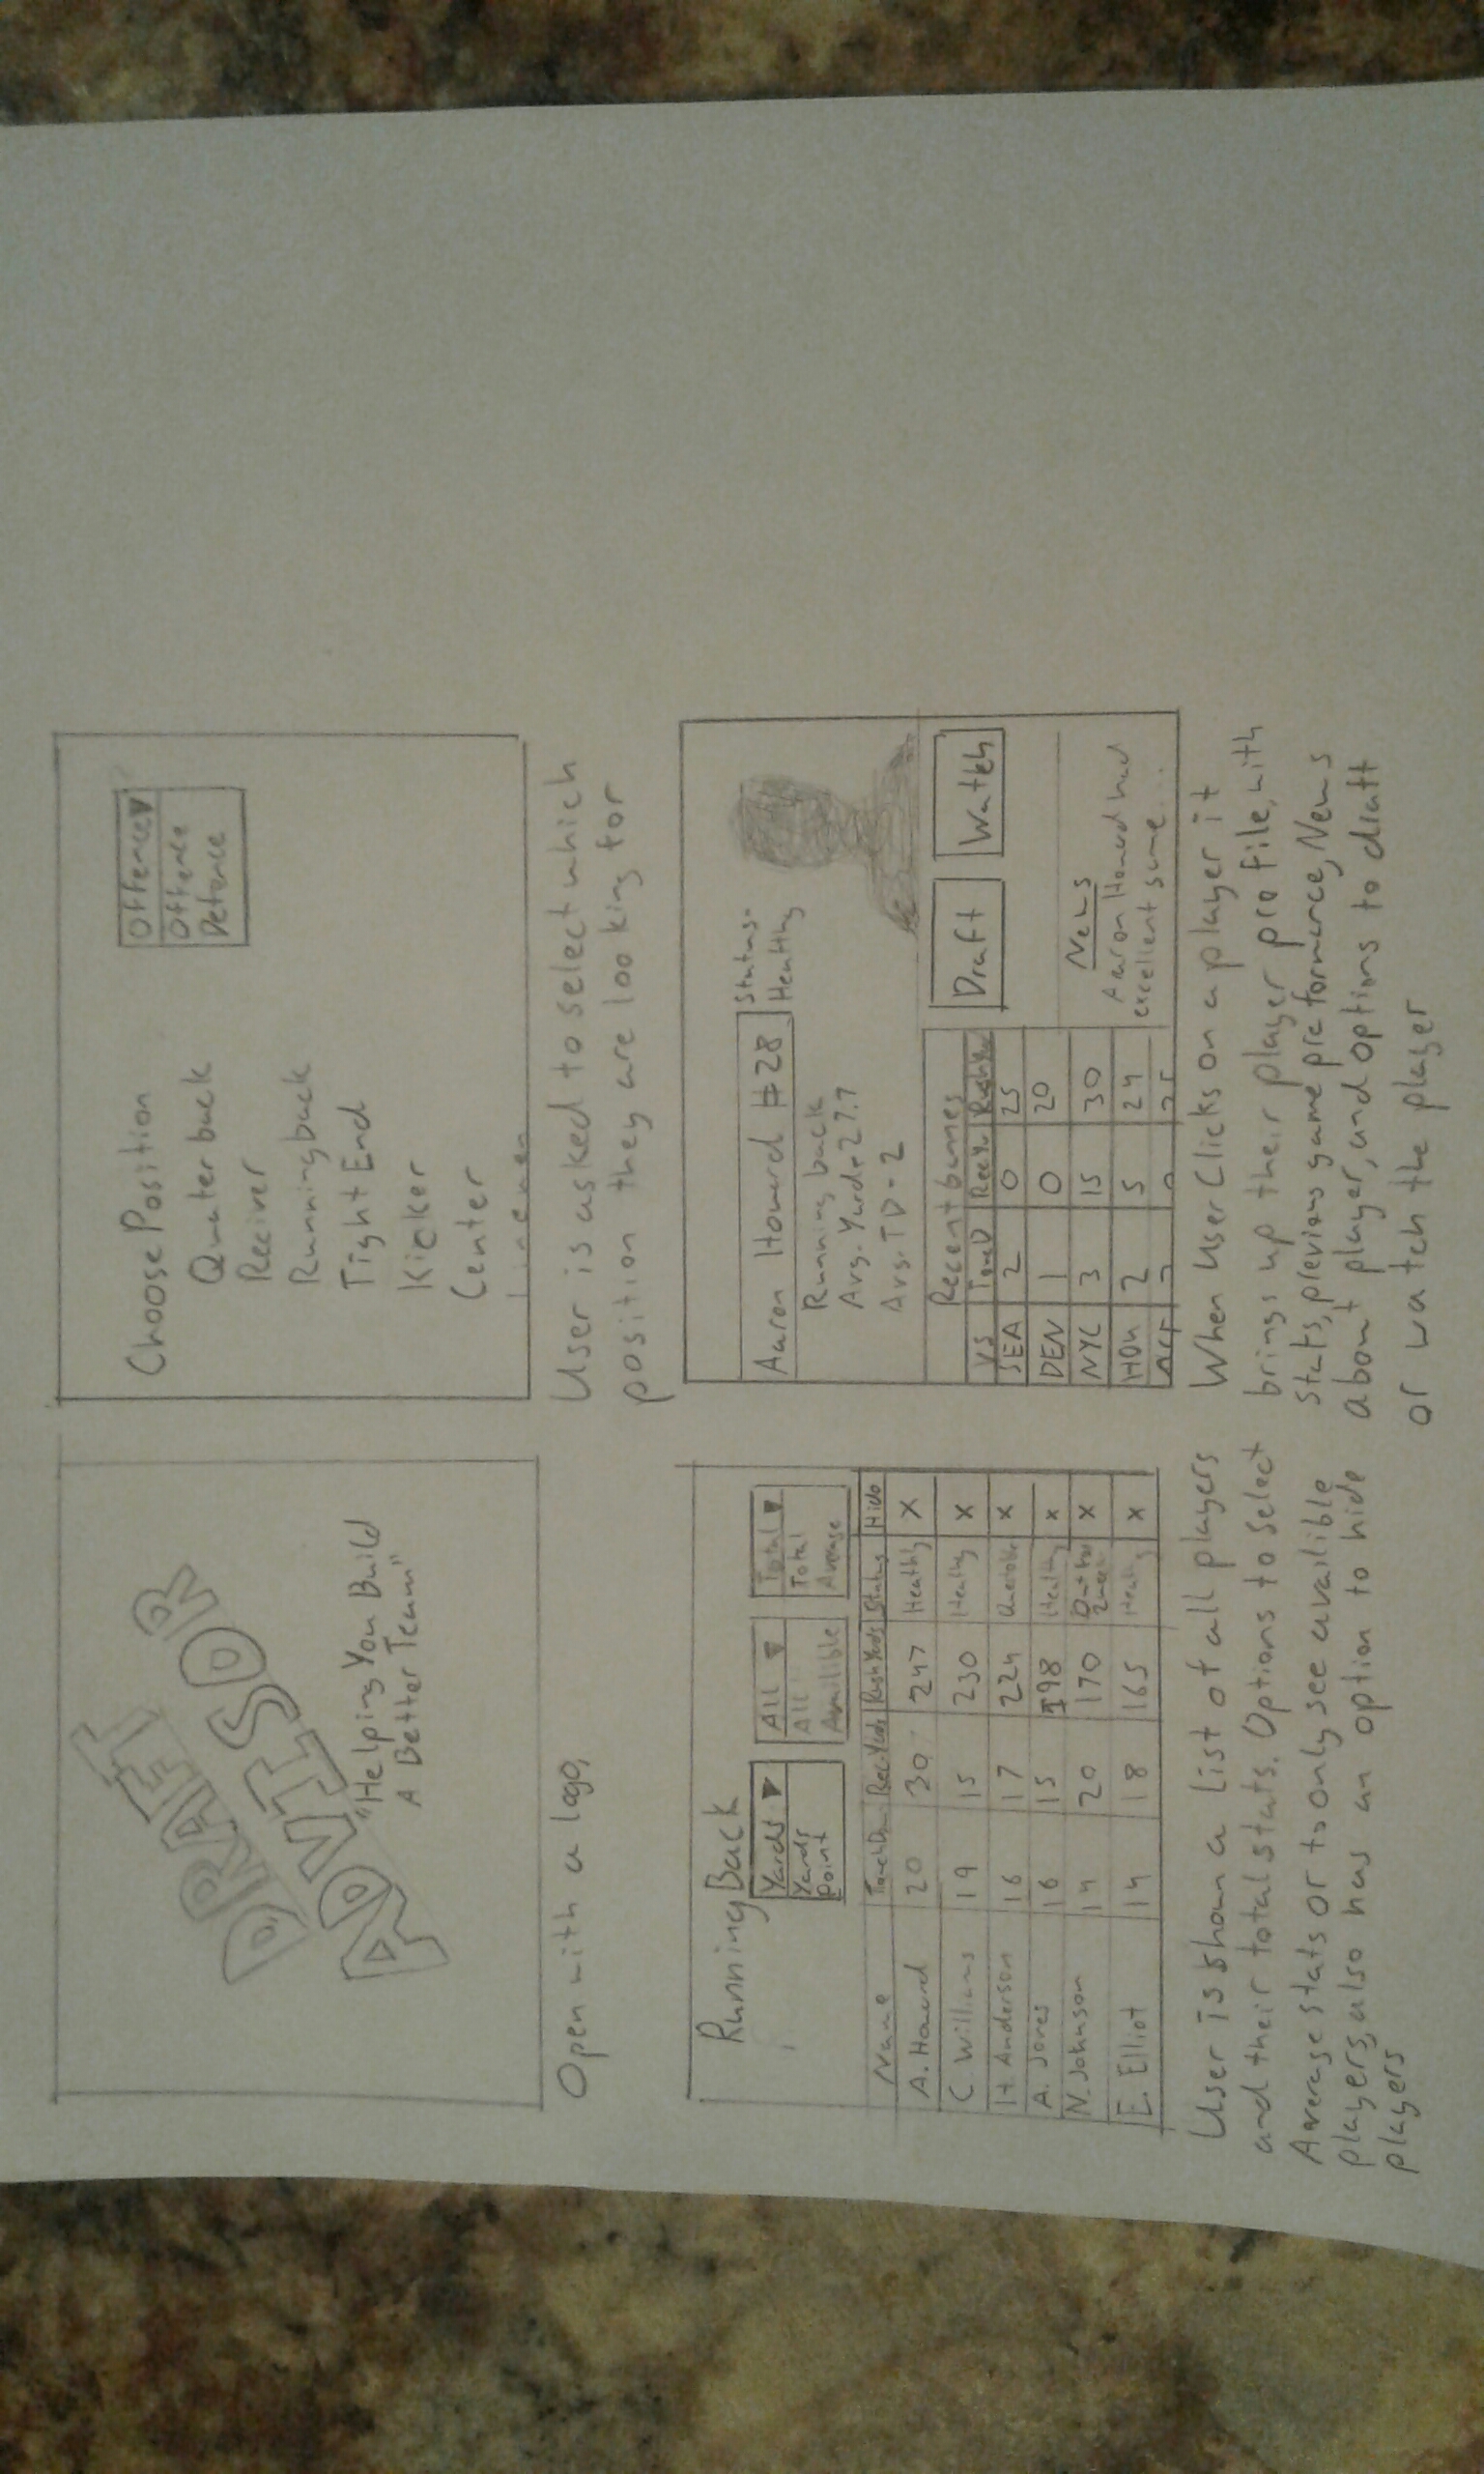 DRAFT
ADVISOR
"Helping You Build
A Better Team"
Open with a logo,
Choose Position
Offence ▼
Offence
Defence
Quaterback
Reciver
Runningback
Tight End
Kicker
Center
User is asked to select which
position they are looking for
Running Back
Yards ▼ All ▼ Total ▼
Yards All Total
Point Availible Average
Name TouchDn Rec.Yards RushYards Status Hide
A. Howard 20 30 247 Healthy X
C. Williams 19 15 230 Healthy X
H. Anderson 16 17 224 X
A. Jones 16 15 198 Healthy X
N. Johnson 14 20 170 Out for 2 weeks X
E. Elliot 14 18 165 Healthy X
User is shown a list of all players
and their total stats. Options to select
Average stats or to only see availible
players, also has an option to hide
players
Aaron Howard #28
Status-
Healthy
Running back
Avg. Yards - 27.7
Avg. TD - 2
Draft Watch
Recent Games
VS TouchD RecYds RushYds
SEA 2 0 25
DEN 1 0 20
NYC 3 15 30
HOU 2 5 24
News
Aaron Howard had
excellent some....
When User Clicks on a player it
brings up their player profile, with
stats, previous game preformance, News
about player, and options to draft
or watch the player